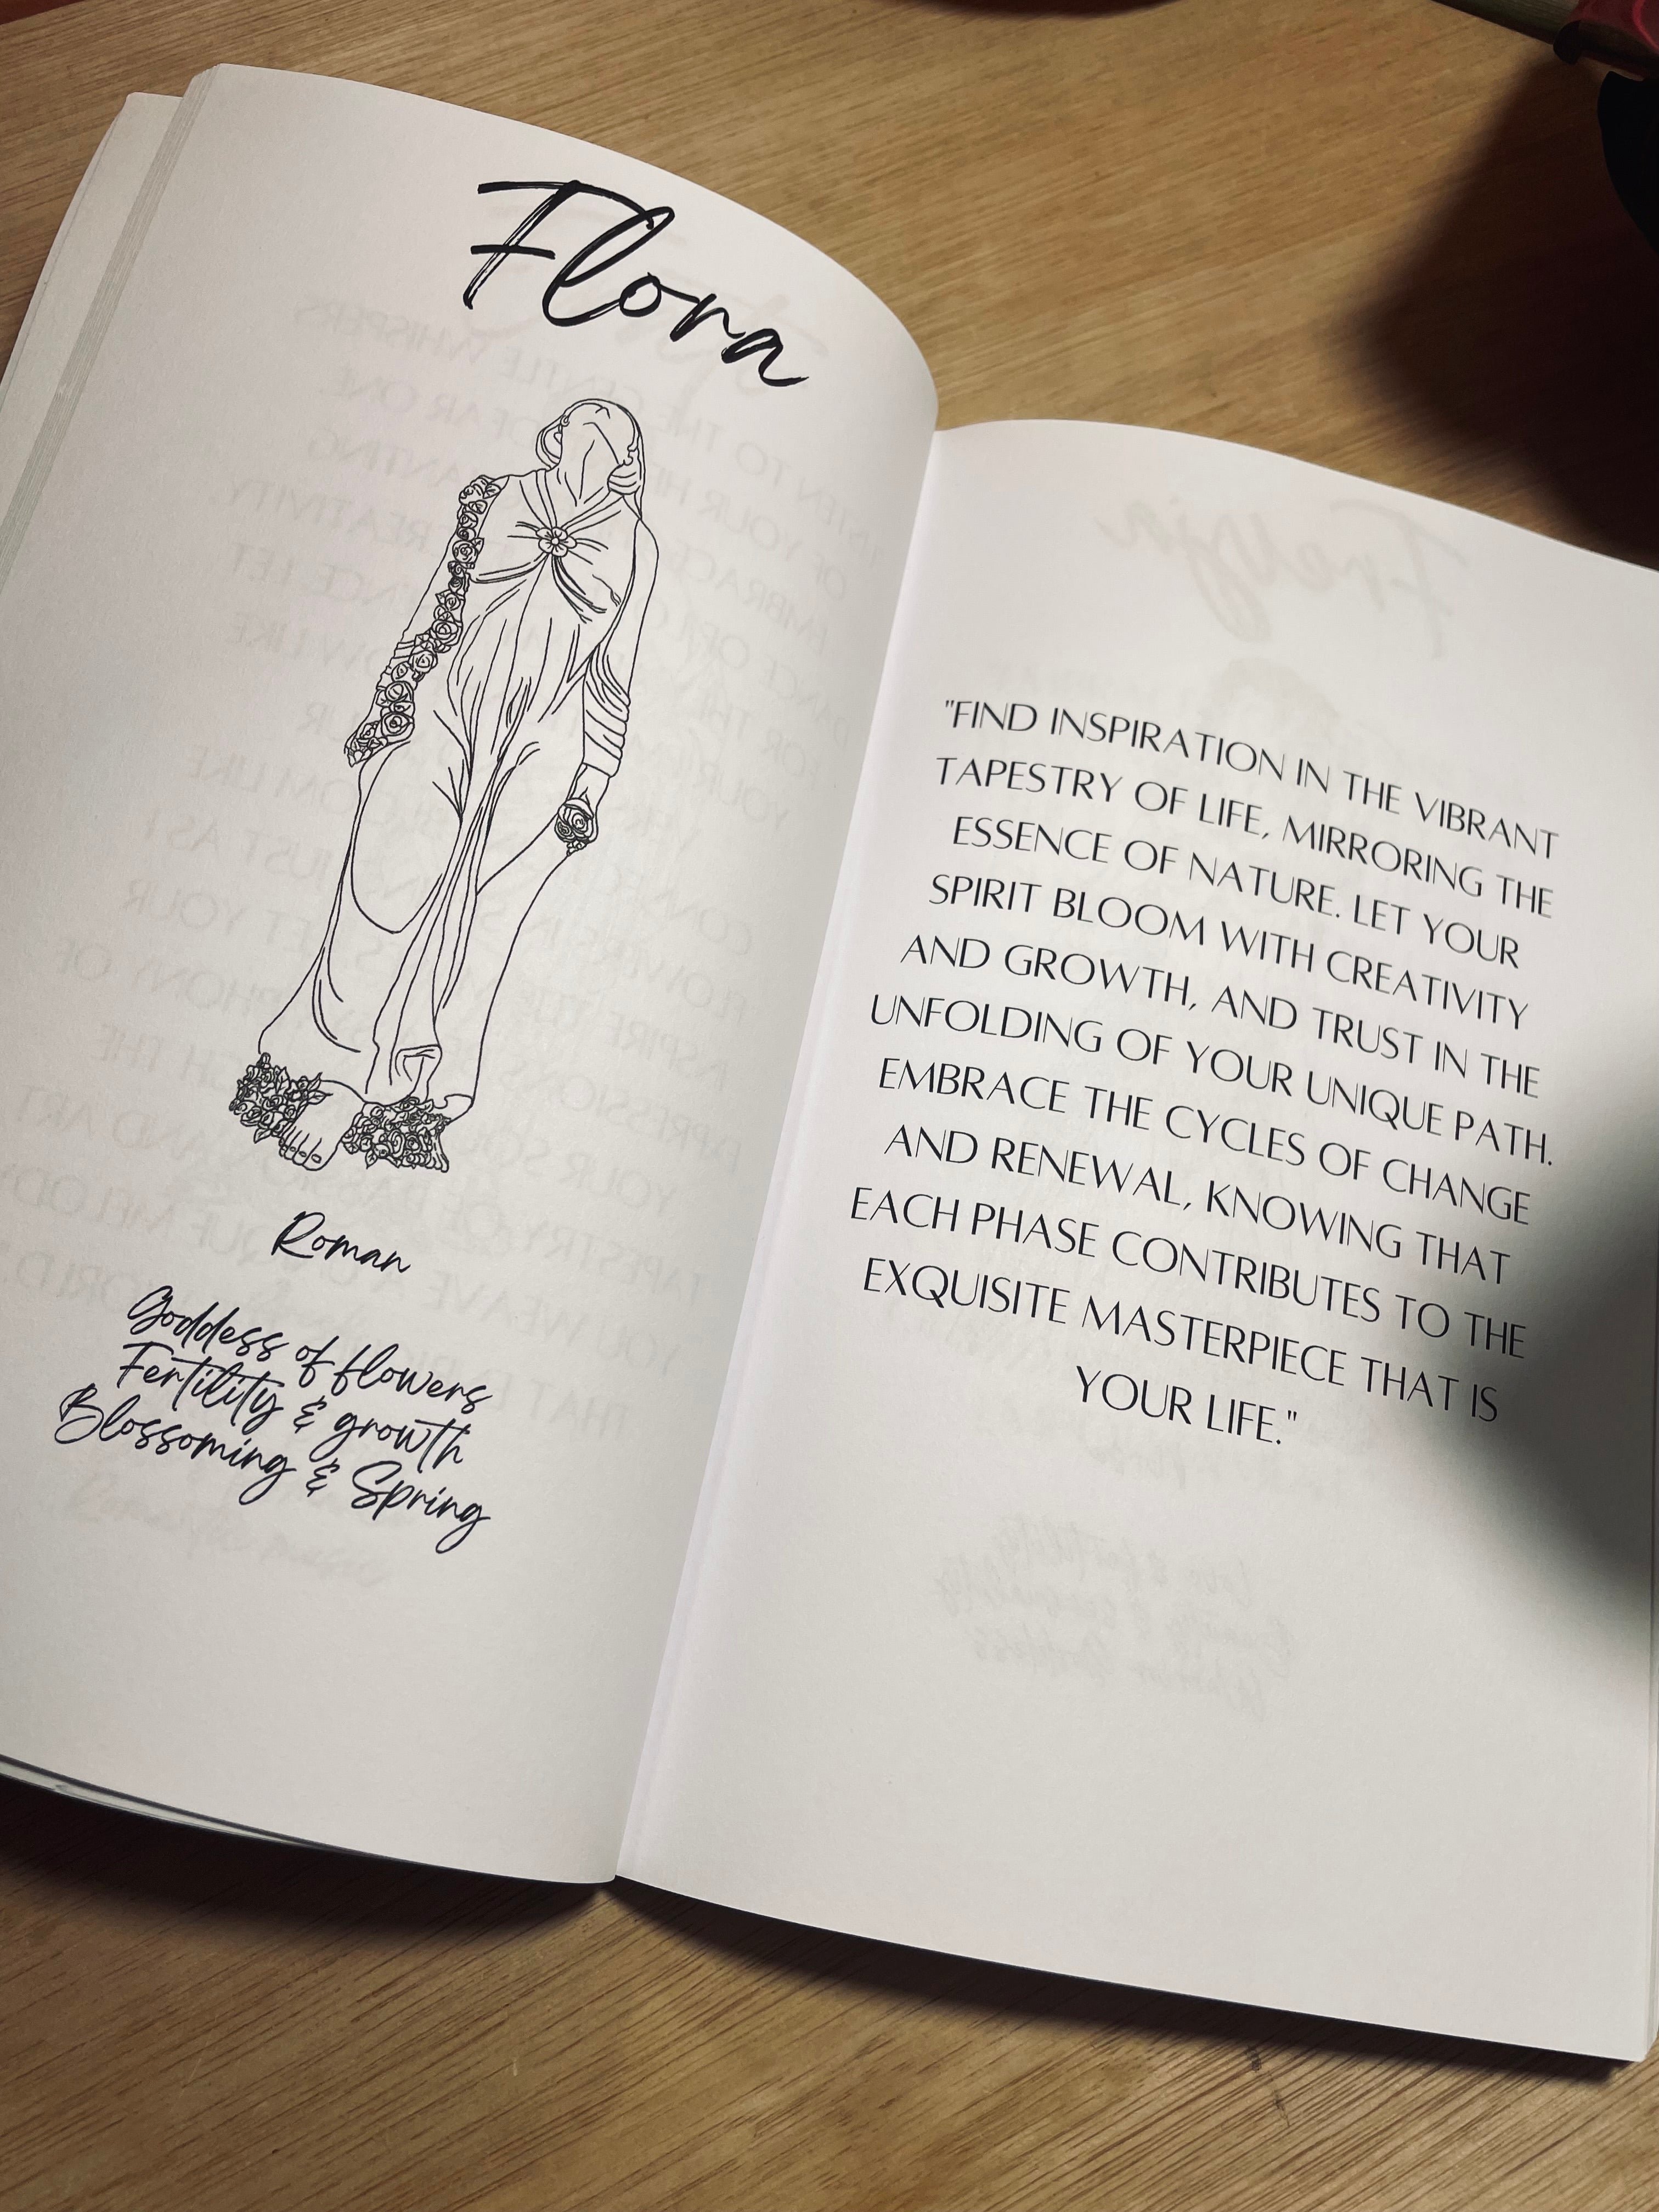 Flora
Roman
Goddess of flowers
Fertility & growth
Blossoming & Spring
"FIND INSPIRATION IN THE VIBRANT
TAPESTRY OF LIFE, MIRRORING THE
ESSENCE OF NATURE. LET YOUR
SPIRIT BLOOM WITH CREATIVITY
AND GROWTH, AND TRUST IN THE
UNFOLDING OF YOUR UNIQUE PATH.
EMBRACE THE CYCLES OF CHANGE
AND RENEWAL, KNOWING THAT
EACH PHASE CONTRIBUTES TO THE
EXQUISITE MASTERPIECE THAT IS
YOUR LIFE."
Freyja